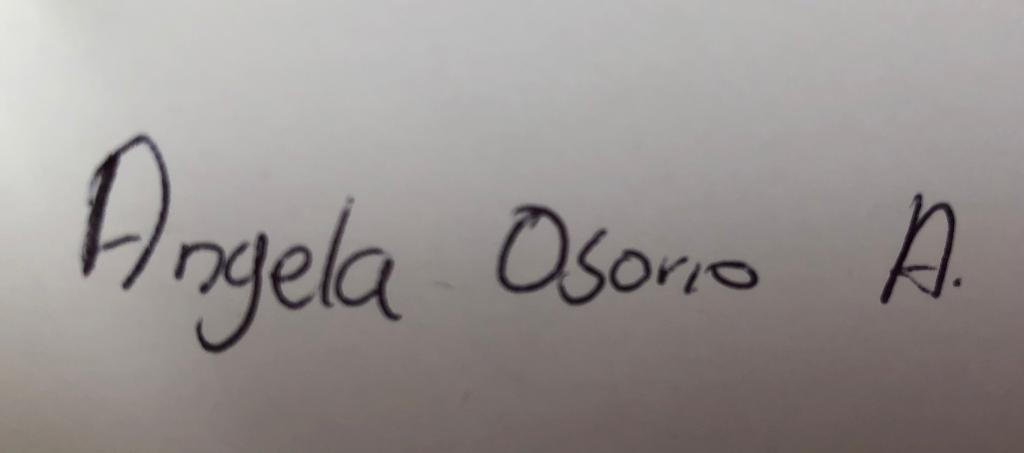 Angela Osorio A.